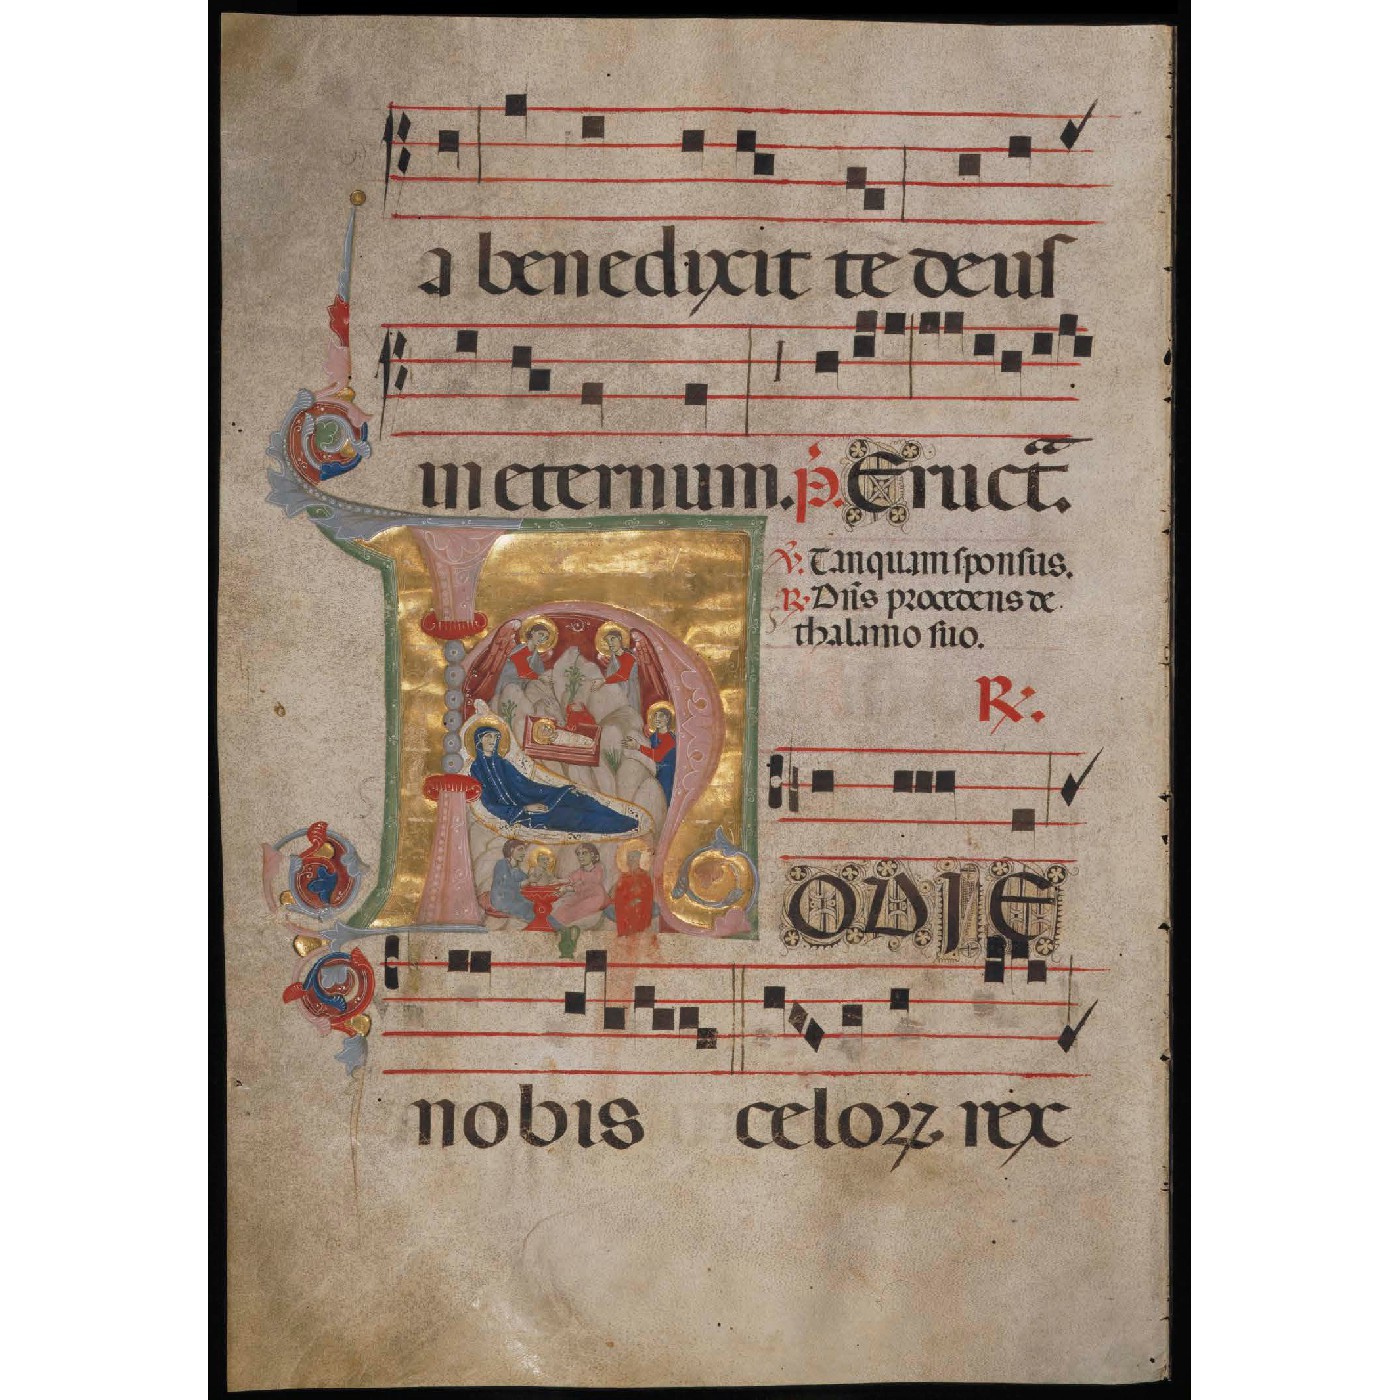 a benedixit te deus
in eternum. p̄. Eruct̄a.
℣. Tanquam sponsus.
℟. Dn̄s procedens de
thalamo suo.
℟.
HODIE
nobis celoꝝ rex